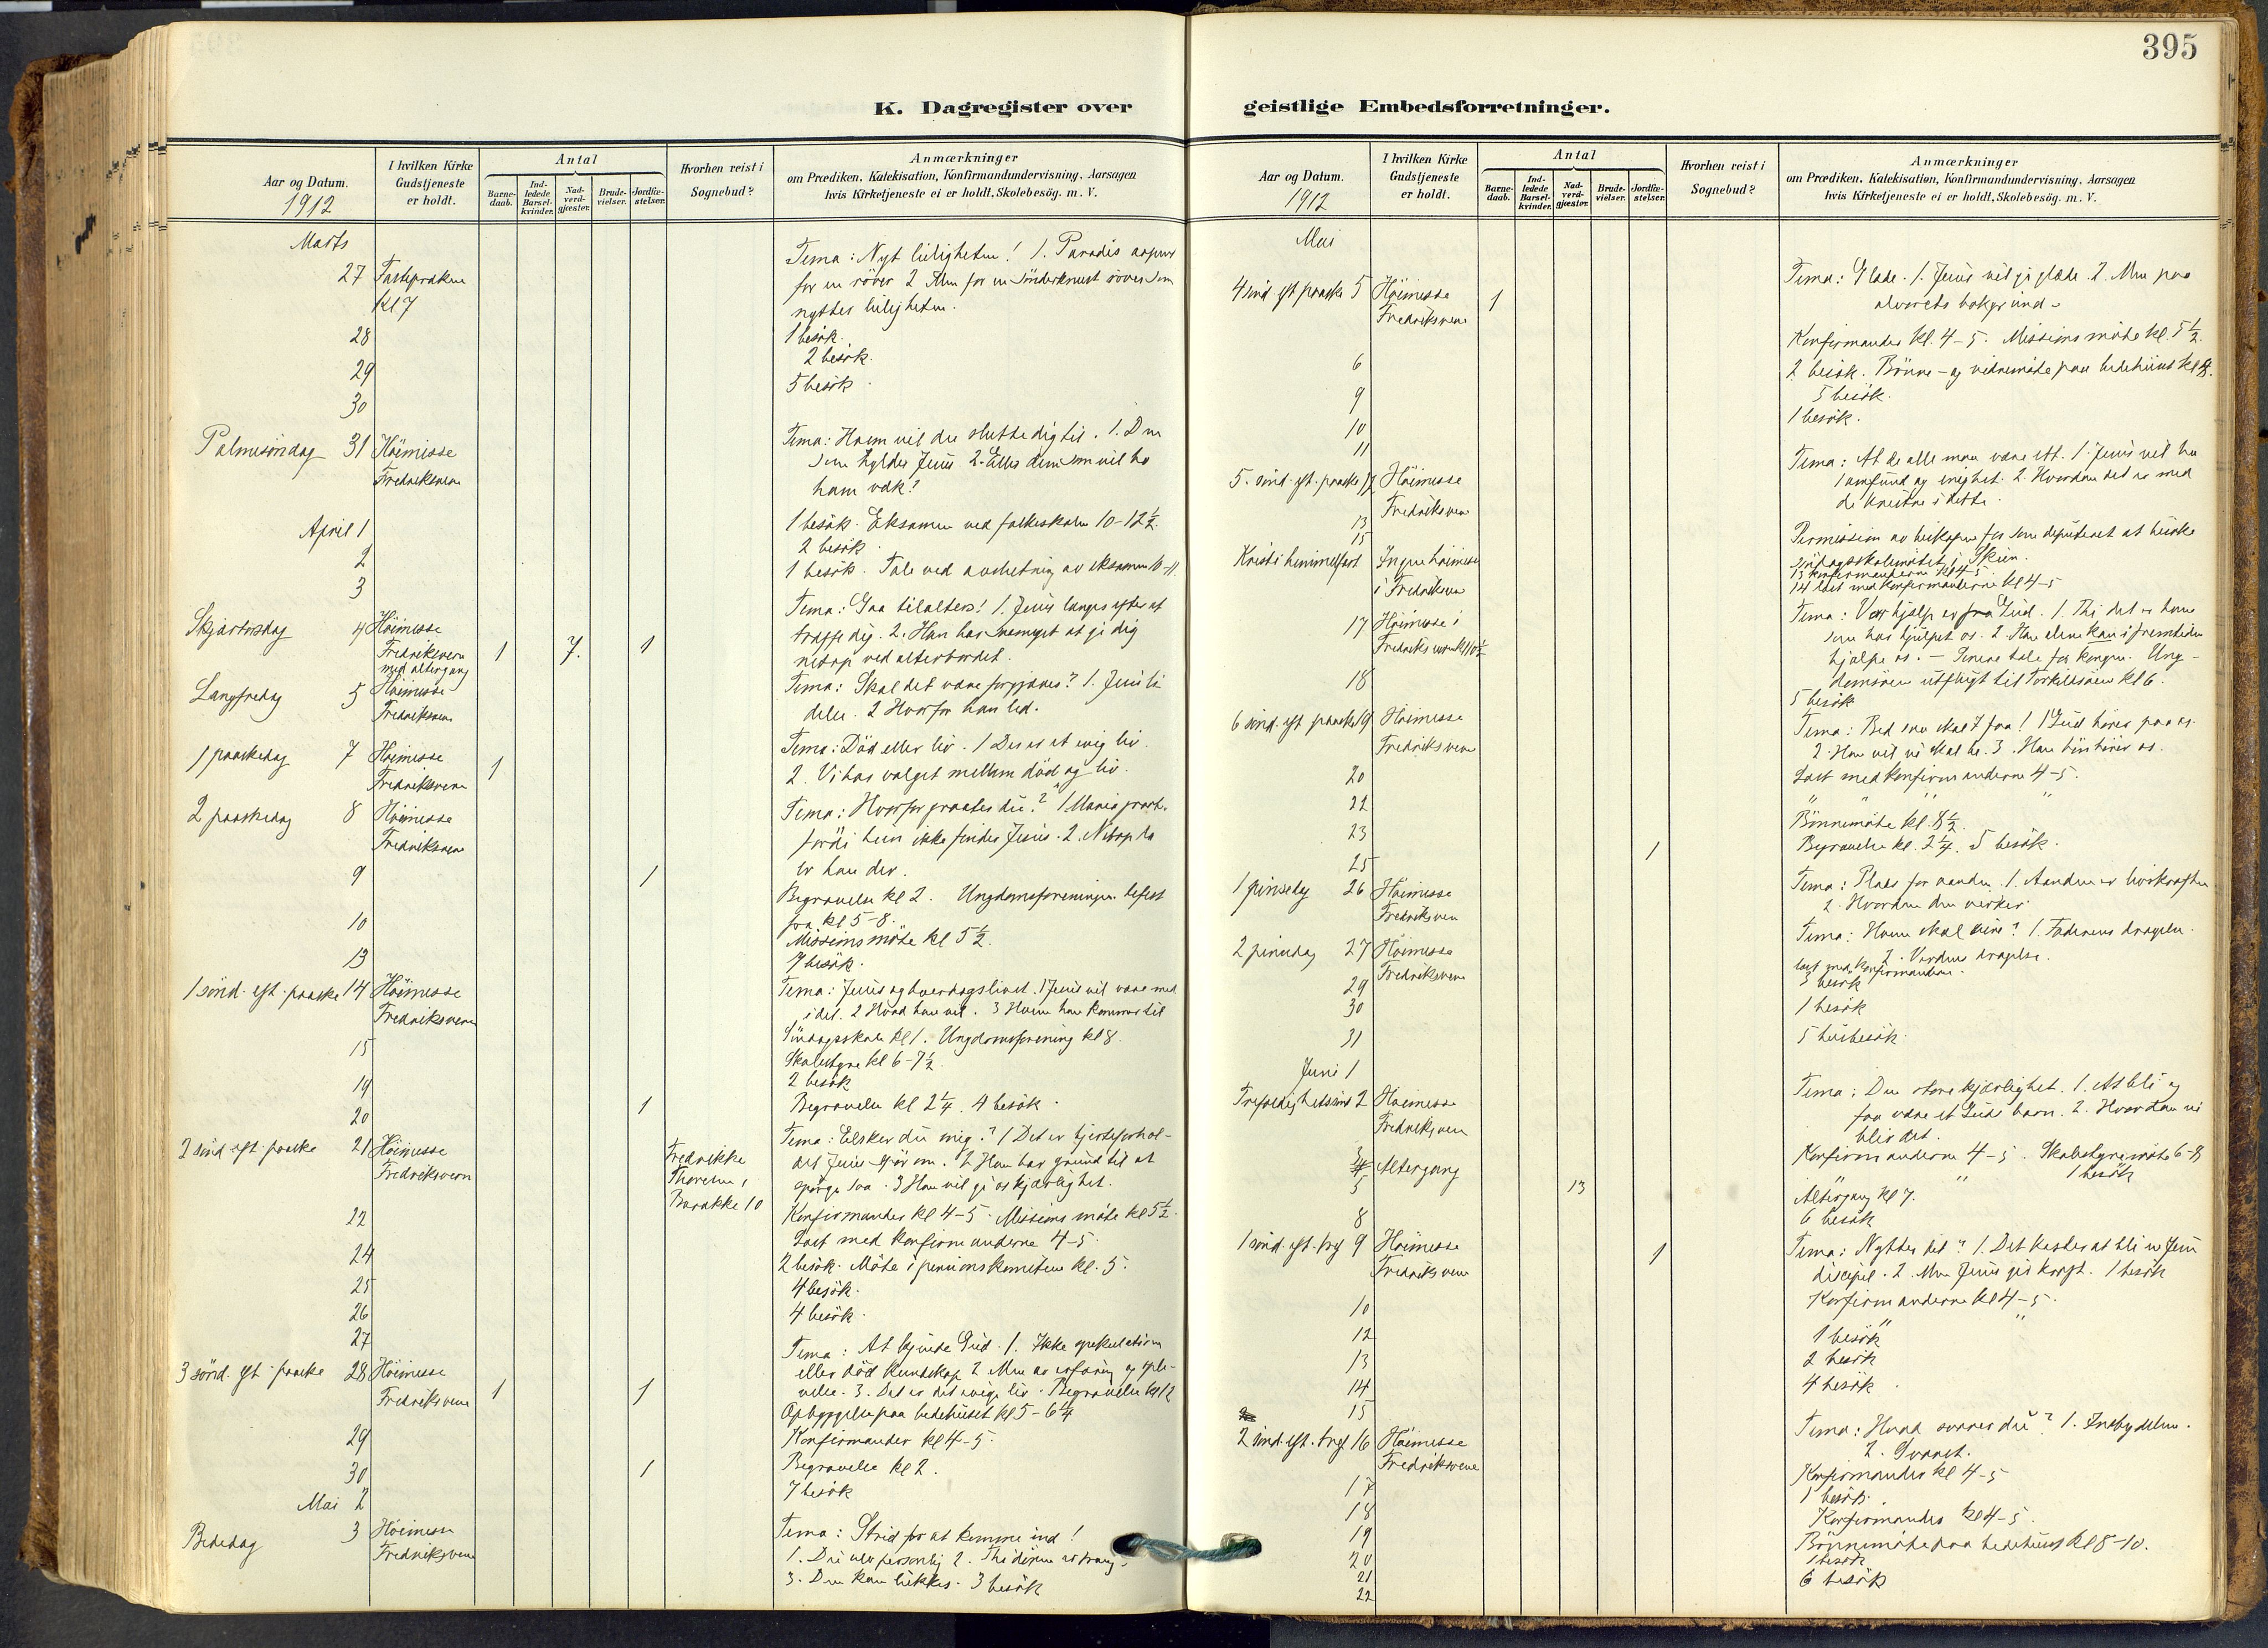 395
K. Dagregister over geistlige Embedsforretninger.
Aar og Datum.
1912
I hvilken Kirke Gudstjeneste er holdt.
Antal
Barne-daab.
Ind-ledede Barsel-kvinder.
Nad-verd-gjæster.
Brude-vielser.
Jordfæ-stelser.
Hvorhen reist i Sognebud?
Anmærkninger
om Prædiken, Katekisation, Konfirmandundervisning, Aarsagen
hvis Kirketjeneste ei er holdt, Skolebesög. m. V.
Marts
27 Fasteprækne Kl 7
Tema: Nyt leiligheten! 1. Paradis
for en röver 2 Men for en sönderknust röver som
nytter leiligheten.
28 1 besök.
2 besök.
29 5 besök.
30
Palmesöndag 31 Höimesse Fredriksvern
Tema: Hvem vil du slutte dig til. 1. Dem
som hylder Jesus 2. Eller dem som vil ha
ham væk?
April 1
1 besök. Eksamen ved folkeskolen 10-12½.
2 2 besök.
3 1 besök. Tale ved avslutning av eksamen 10-11.
Skjærtorsdag 4 Höimesse Fredriksvern med altergang 1 7. 1
Tema: Gaa tilalters! 1. Jesus længes efter at
træffe dig. 2. Han har saameget at gi dig
netop ved alterbordet.
Langfredag 5 Höimesse Fredriksvern
Tema: Skal det være forgjæves? 1. Jesu li-
delse. 2 Hvorfor han led.
1 paaskedag 7 Höimesse Fredriksvern 1
Tema: Död eller liv. 1 Der er et evig liv.
2. Vi har valget mellem död og liv.
2 paaskedag 8 Höimesse Fredriksvern
Tema: Hvorfor graater du? 1 Maria graat.
fordi hun ikke finder Jesus. 2. Netop da
er han der.
9 1
Begravelse kl 2. Ungdomsforeningen
fra kl 5-8.
10 Missionsmöte kl 5½.
13 7 besök.
1 sönd. eft. paaske 14 Höimesse Fredriksvern
Tema: Jesus og hverdagslivet. 1 Jesus vil være med
i det. 2 Hvad han vil. 3 Hvem han kommer til
Söndagsskole kl 1. Ungdomsforening kl 8.
15 Skolestyre kl 6-7½.
19 2 besök
20 1
Begravelse kl 2¼. 4 besök.
2 sönd eft paaske 21 Höimesse Fredriksvern
Fredrikke Thoresen, Barakke 10
Tema: Elsker du mig? 1 Det er hjerteforhol-
det Jesus spör om. 2 Han har grund til at
spörge saa. 3 Han vil gi os kjærlighet.
22 Konfirmander kl 4-5. Missions möte kl 5½.
24 Læst med konfirmanderne 4-5.
25 2 besök. Möte i pensionskomiteen kl. 5.
26 4 besök.
27 4 besök.
3 sönd. eft paaske 28 Höimesse Fredriksvern 1 1
Tema: At kjende Gud. 1. Ikke spekulation
eller död kundskap 2 Men av erfaring og ople-
velse. 3. Det er det evige liv. Begravelse kl 12
Opbyggelse paa bedehuset kl 5-6¼
29 Konfirmander kl 4-5.
30 1
Begravelse kl 2.
Mai 2 7 besök
Bededag 3 Höimesse Fredriksvern
Tema: Strid for at komme ind!
1. Du selv personlig 2. Thi dören er trang.
3. Den kan lukkes. 3 besök
Aar og Datum.
1912
I hvilken Kirke Gudstjeneste er holdt.
Antal
Barne-daab.
Ind-ledede Barsel-kvinder.
Nad-verd-gjæster.
Brude-vielser.
Jordfæ-stelser.
Hvorhen reist i Sognebud?
Anmærkninger
om Prædiken, Katekisation, Konfirmandundervisning, Aarsagen
hvis Kirketjeneste ei er holdt, Skolebesög. m. V.
Mai
4 sönd eft paaske 5 Höimesse Fredriksvern 1
Tema: Glæde. 1. Jesus vil gi glæde. 2. Men paa
alvorets bakgrund.
6 Konfirmander kl. 4-5. Missionsmöte kl. 5½.
9 2 besök. Bönne- og vidnemöte paa bedehuset kl 8.
10 5 besök.
11 1 besök.
5. sönd. eft. paaske 12 Höimesse Fredriksvern
Tema: At de alle maa være ett. 1. Jesus vil ha
samfund og enighet. 2. Hvordan det er med
de kristne i dette.
13
15
Kristi himmelfart Ingen höimesse i Fredriksvern
Permission av biskopen for som deputeret at besöke
söndagsskolemötet i Skien.
13 konfirmanderne kl 4-5.
14 læst med konfirmanderne kl 4-5
17 Höimesse i Fredriksvern kl 10½
Tema: Vor hjælp er fra Gud. 1. Thi det er ham
som har hjulpet os. 2. Han alene kan i fremtiden
hjælpe os. - Senere tale for kongen. Ung-
domsforen utflugt til Torkildsöen kl 6.
18 5 besök
6 sönd. eft paaske 19 Höimesse Fredriksvern
Tema: Bed saa skal I faa! 1 Gud hörer paa os.
2. Han vil vi skal be. 3. Han bönhörer os.
20 Læst med konfirmanderne 4-5.
22 " " " "
23 Bönnemöte kl. 8½.
25 1
Begravelse kl. 2¼. 5 besök.
1 pinsedag 26 Höimesse Fredriksvern
Tema: Plads for aanden. 1. Aanden er livskraften
2. Hvordan den virker.
2 pinsedag 27 Höimesse Fredriksvern
Tema: Hvem skal seire? 1. Faderens dragelse.
2. Verdens dragelse.
læst med konfirmanderne.
29 3 besök
30 1 besök
31 5 husbesök.
Juni 1
Trefoldighetssönd 2 Höimesse Fredriksvern
Tema: Den store kjærlighet. 1. At bli og
faa være et Guds barn. 2. Hvordan vi
blir det.
3 Konfirmanderne 4-5. Skolestyremöte 6-8
4 " " 1 besök
5 Altergang 13
Altergang kl 7.
8 6 besök
1 sönd. eft. tref 9 Höimesse Fredriksvern 1
Tema: Nytter det? 1. Det koster at bli en Jesu
discipel. 2. Men Jesus gir kraft. 1 besök
10 Konfirmanderne kl 4-5.
12 " "
1 besök
13 2 besök
14 4 besök
15
2 sönd. eft. tref 16 Höimesse Fredriksvern
Tema: Hvad svarer du? 1. Indbydelsen.
2. Svaret.
17 Konfirmander kl 4-5
18 1 besök.
19 Konfirmander kl 4-5.
20 Bönnemöte paa bedehuset kl 8-10.
21 1 besök
22 6 besök